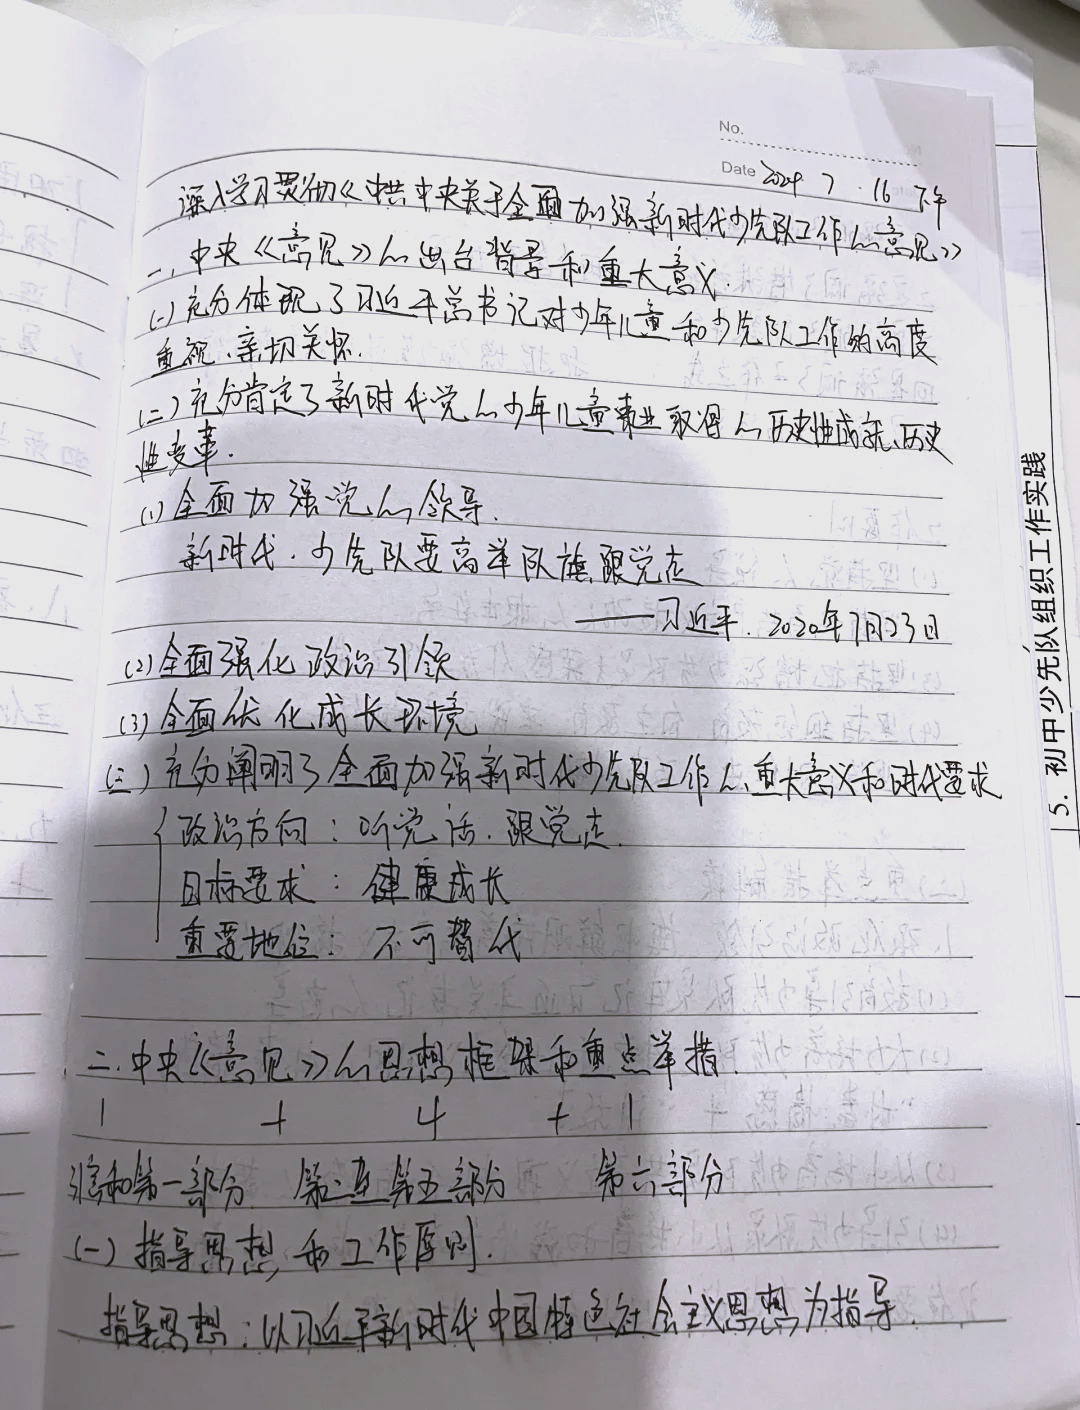 No.
Date 2024 7 . 16 下午
深入学习贯彻《中共中央关于全面加强新时代少先队工作的意见》
一、中央《意见》的出台背景和重大意义.
(一) 充分体现了习近平总书记对少年儿童和少先队工作的高度
重视、亲切关怀.
(二) 充分肯定了新时代党的少年儿童事业取得的历史性成就、历史
性变革.
(1) 全面加强党的领导.
新时代、少先队要高举队旗跟党走
——习近平. 2020年7月23日
(2) 全面强化政治引领
(3) 全面优化成长环境
(三) 充分阐明了全面加强新时代少先队工作的重大意义和时代要求
政治方向：听党话、跟党走.
目标要求：健康成长
重要地位：不可替代
二、中央《意见》的思想框架和重点举措.
1 + 4 + 1
引言和第一部分 第二至第五部分 第六部分
(一) 指导思想和工作原则.
指导思想：以习近平新时代中国特色社会主义思想为指导.
5. 初中少先队组织工作实践